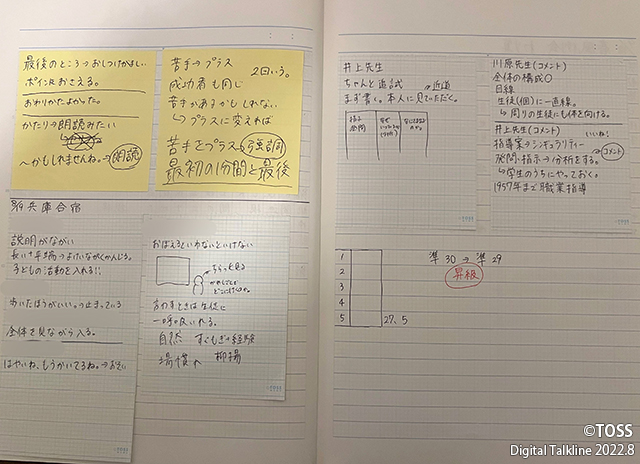 最後のところ→おしつけがましい
ポイントおさえる。
おわりかたよかった。
かたり→朗読みたい
〜かもしれませんね。→朗読
苦手→プラス
2回いう。
成功者も同じ
苦手があるかもしれない
↳プラスに変えれば
苦手をプラス→強調
最初の1分間と最後
兵庫合宿
説明がながい
長い+早場→よけいながくかんじる。
子どもの活動を入れる!!
歩いたほうがいい。→止まっている
全体を見ながら入る。
はやいね、もうかいてるね。→おそい
おぼえるといわないといけない
ちらっと見る
言わすときは生徒に
一呼吸いれる。
自然
場慣れ
井上先生
ちゃんと追試
→近道
まず書く。本人に見ていただく。
指示
発問
川原先生(コメント)
全体の構成○
目線
生徒(個)に一直線。
↳周りの生徒にも体を向ける。
井上先生(コメント)
いいね!
指導案→シンギュラリティー
コメント
発問・指示→分析をする。
↳学生のうちにやっておく。
1957年まで職業指導
1
2
3
4
5
27、5
準30→準29
昇級
©TOSS
Digital Talkline 2022.8